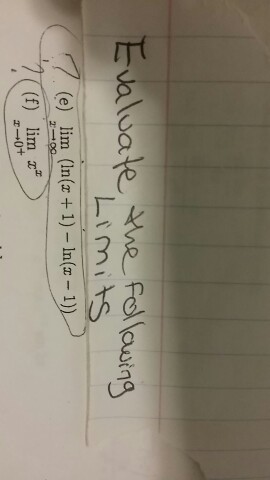 Evaluate the following
Limits
7. (e) lim x→∞ (ln(x + 1) − ln(x − 1))
7. (f) lim x→0⁺ xˣ